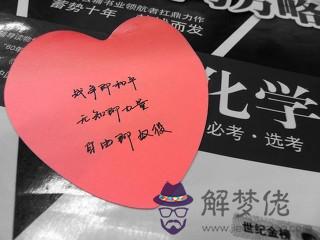 福书业领导者扛鼎力作
蓄势十年
而发
战争即和平
无知即力量
自由即奴役
化学
必考·选考
解梦佬
世纪金榜